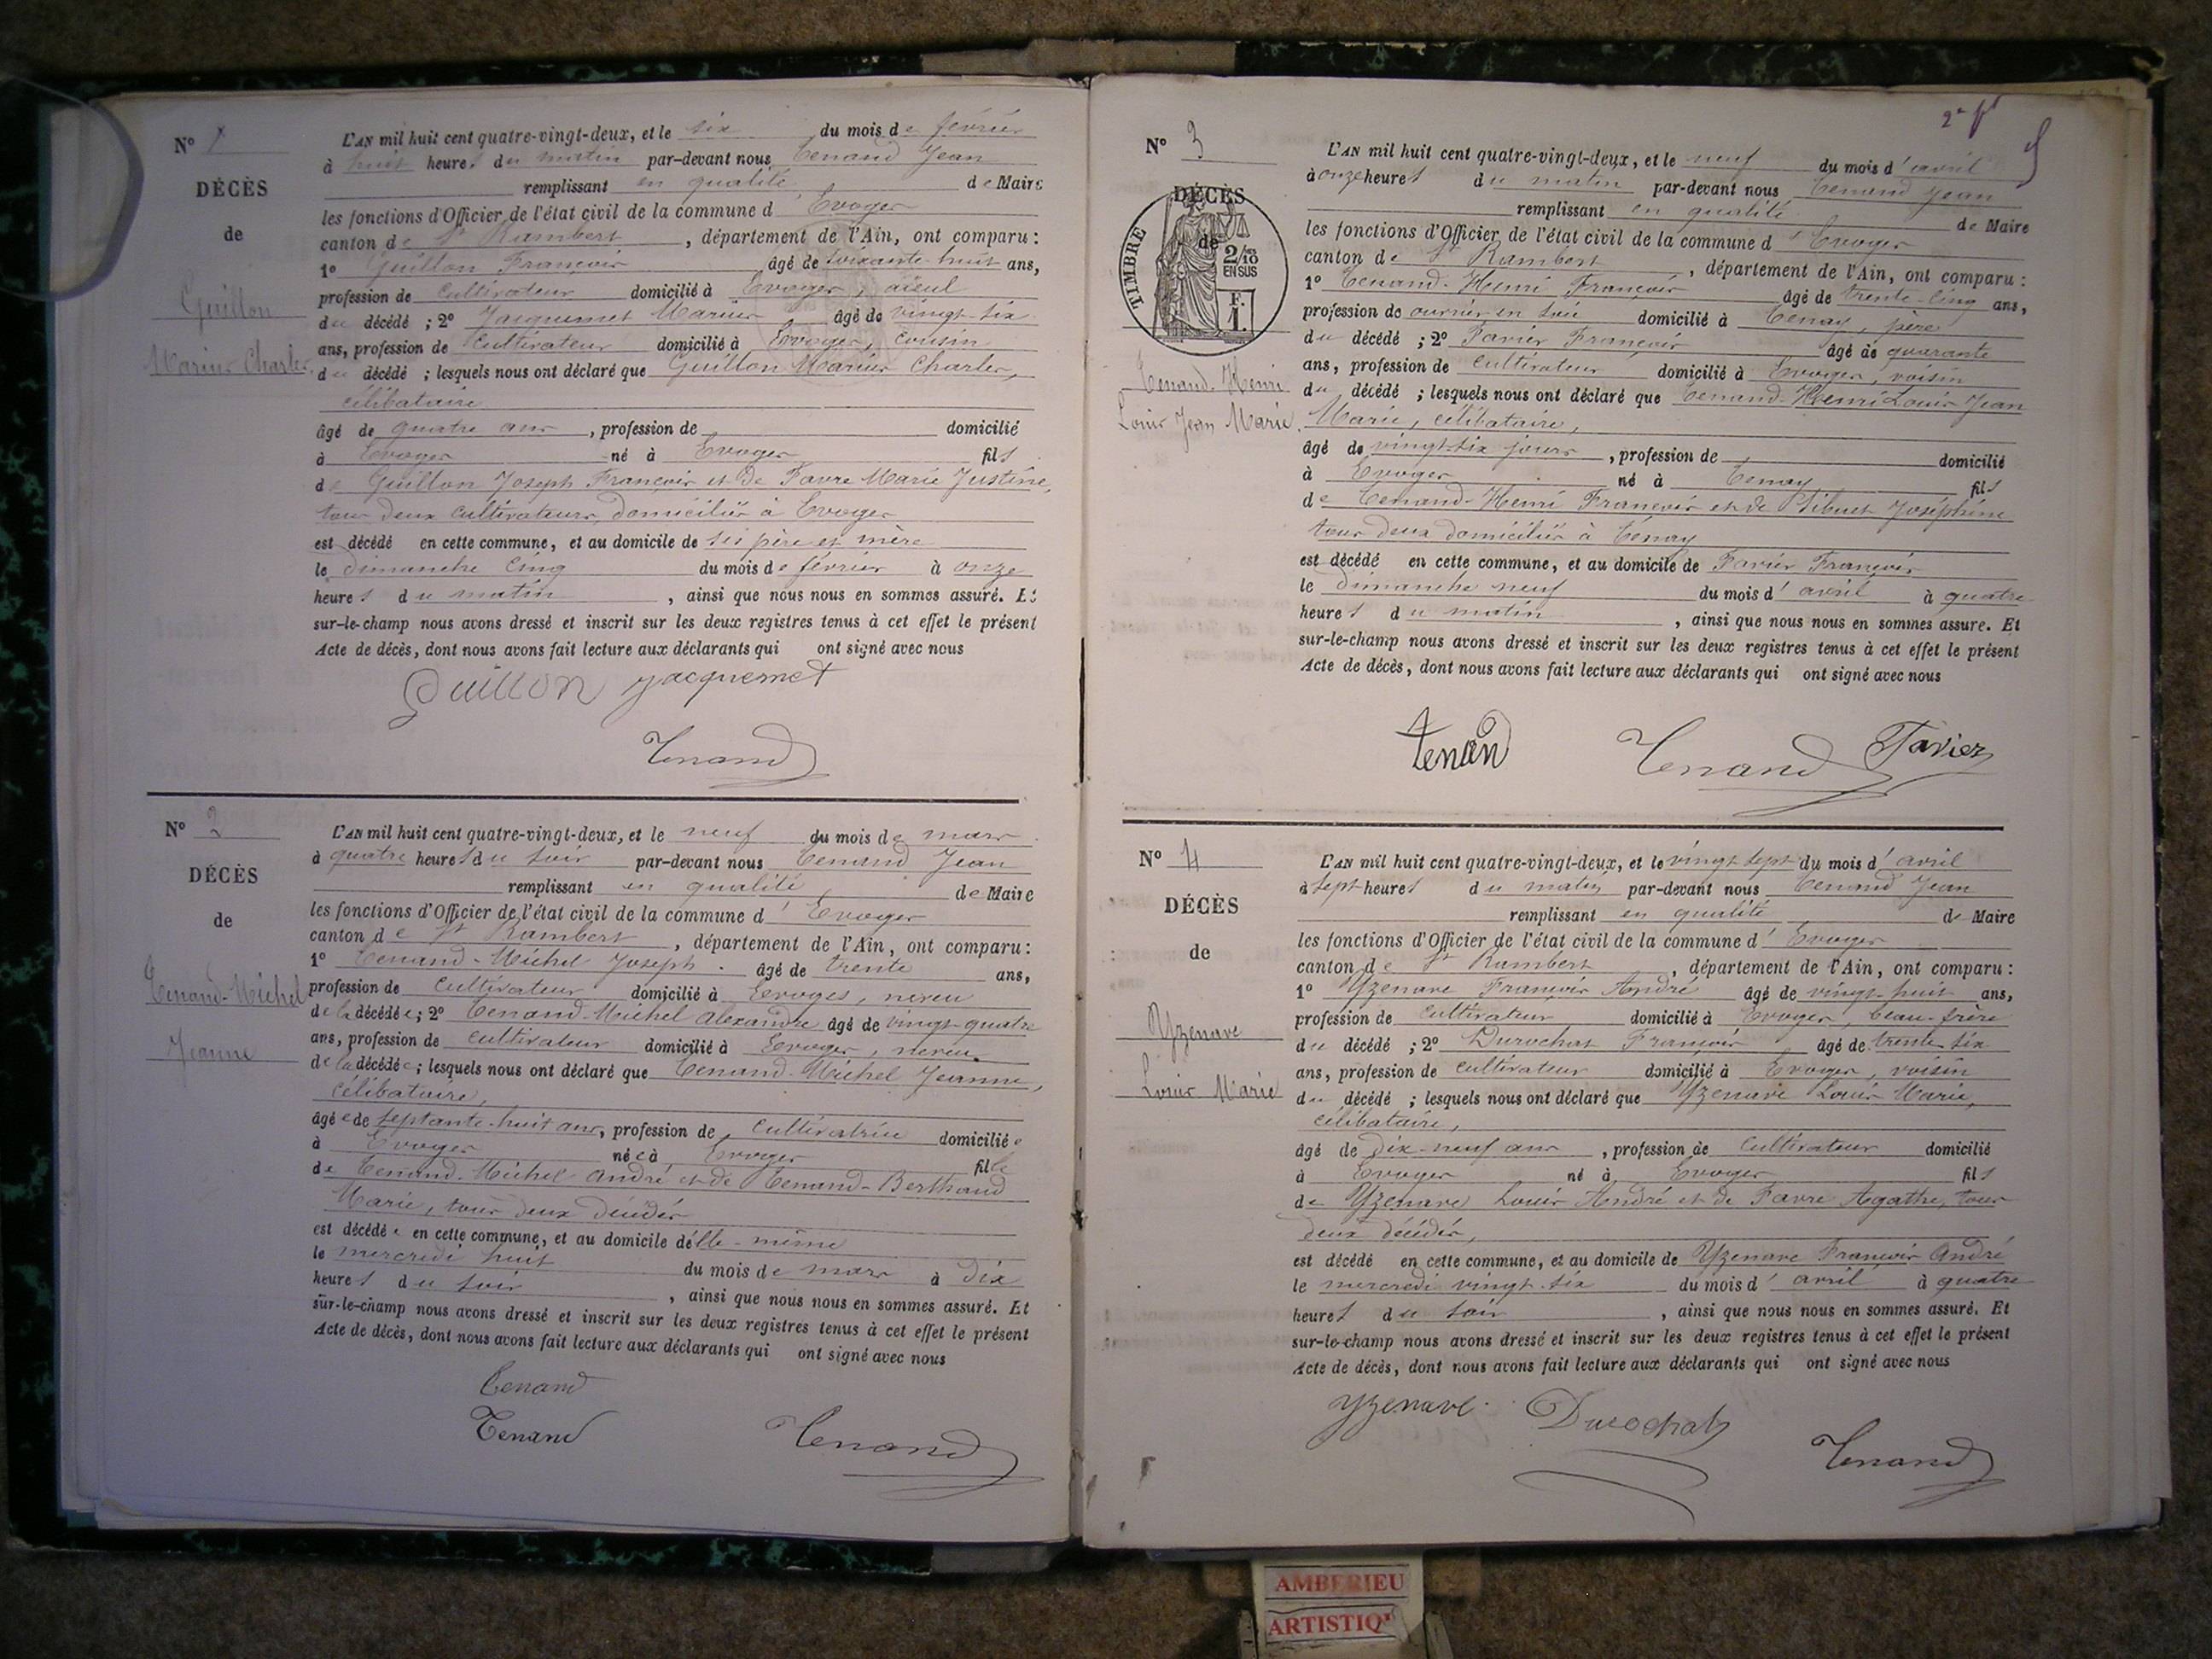 N° 1
DÉCÈS
de
Guillon
Marius Charles
L'AN mil huit cent quatre-vingt-deux, et le six du mois de février
à huit heures du matin par-devant nous Tenand Jean
remplissant en qualité de Maire
les fonctions d'Officier de l'état civil de la commune d'Evoges
canton de St Rambert, département de l'Ain, ont comparu :
1° Guillon François âgé de soixante-huit ans,
profession de cultivateur domicilié à Evoges, aïeul
du décédé ; 2° Jacquemet Marius âgé de vingt-six
ans, profession de cultivateur domicilié à Evoges, cousin
du décédé ; lesquels nous ont déclaré que Guillon Marius Charles,
célibataire
âgé de quatre ans, profession de domicilié
à Evoges né à Evoges fils
de Guillon Joseph François et de Favre Marie Justine,
tous deux cultivateurs, domiciliés à Evoges
est décédé en cette commune, et au domicile de ses père et mère
le dimanche cinq du mois de février à onze
heures du matin, ainsi que nous nous en sommes assuré. Et
sur-le-champ nous avons dressé et inscrit sur les deux registres tenus à cet effet le présent
Acte de décès, dont nous avons fait lecture aux déclarants qui ont signé avec nous
Guillon Jacquemet
Tenand
N° 2
DÉCÈS
de
Tenand-Michel
Jeanne
L'AN mil huit cent quatre-vingt-deux, et le neuf du mois de mars
à quatre heures du soir par-devant nous Tenand Jean
remplissant en qualité de Maire
les fonctions d'Officier de l'état civil de la commune d'Evoges
canton de St Rambert, département de l'Ain, ont comparu :
1° Tenand-Michel Joseph. âgé de trente ans,
profession de cultivateur domicilié à Evoges, neveu
de la décédée ; 2° Tenand-Michel Alexandre âgé de vingt-quatre
ans, profession de cultivateur domicilié à Evoges, neveu
de la décédée ; lesquels nous ont déclaré que Tenand-Michel Jeanne,
célibataire,
âgée de septante-huit ans, profession de cultivatrice domiciliée
à Evoges née à Evoges fille
de Tenand-Michel André et de Tenand-Berthand
Marie, tous deux décédés
est décédée en cette commune, et au domicile d'elle-même
le mercredi huit du mois de mars à dix
heures du soir, ainsi que nous nous en sommes assuré. Et
sur-le-champ nous avons dressé et inscrit sur les deux registres tenus à cet effet le présent
Acte de décès, dont nous avons fait lecture aux déclarants qui ont signé avec nous
Tenand
Tenand Tenand
N° 3
DÉCÈS
de
TIMBRE
2/10
EN SUS
F.
1.
Tenand-Henri
Louis Jean Marie.
L'AN mil huit cent quatre-vingt-deux, et le neuf du mois d'avril
à onze heures du matin par-devant nous Tenand Jean
remplissant en qualité de Maire
les fonctions d'Officier de l'état civil de la commune d'Evoges
canton de St Rambert, département de l'Ain, ont comparu :
1° Tenand-Henri François âgé de trente-cinq ans,
profession de ouvrier en soie domicilié à Tenay, père
du décédé ; 2° Favier François âgé de quarante
ans, profession de cultivateur domicilié à Evoges, voisin
du décédé ; lesquels nous ont déclaré que Tenand-Henri Louis Jean
Marie, célibataire,
âgé de vingt-six jours, profession de domicilié
à Evoges né à Tenay fils
de Tenand-Henri François et de Sibuet Joséphine
tous deux domiciliés à Tenay
est décédé en cette commune, et au domicile de Favier François
le dimanche neuf du mois d'avril à quatre
heures du matin, ainsi que nous nous en sommes assuré. Et
sur-le-champ nous avons dressé et inscrit sur les deux registres tenus à cet effet le présent
Acte de décès, dont nous avons fait lecture aux déclarants qui ont signé avec nous
tenand Tenand Favier
N° 4
DÉCÈS
de
Yzenave
Louis Marie
L'AN mil huit cent quatre-vingt-deux, et le vingt-sept du mois d'avril
à sept heures du matin par-devant nous Tenand Jean
remplissant en qualité de Maire
les fonctions d'Officier de l'état civil de la commune d'Evoges
canton de St Rambert, département de l'Ain, ont comparu :
1° Yzenave François André âgé de vingt-huit ans,
profession de cultivateur domicilié à Evoges, beau-frère
du décédé ; 2° Durochat François âgé de trente-six
ans, profession de cultivateur domicilié à Evoges, voisin
du décédé ; lesquels nous ont déclaré que Yzenave Louis Marie,
célibataire,
âgé de dix-neuf ans, profession de cultivateur domicilié
à Evoges né à Evoges fils
de Yzenave Louis André et de Favre Agathe, tous
deux décédés,
est décédé en cette commune, et au domicile de Yzenave François André
le mercredi vingt-six du mois d'avril à quatre
heures du soir, ainsi que nous nous en sommes assuré. Et
sur-le-champ nous avons dressé et inscrit sur les deux registres tenus à cet effet le présent
Acte de décès, dont nous avons fait lecture aux déclarants qui ont signé avec nous
Yzenave. Durochat
Tenand
AMBERIEU
ARTISTIQ